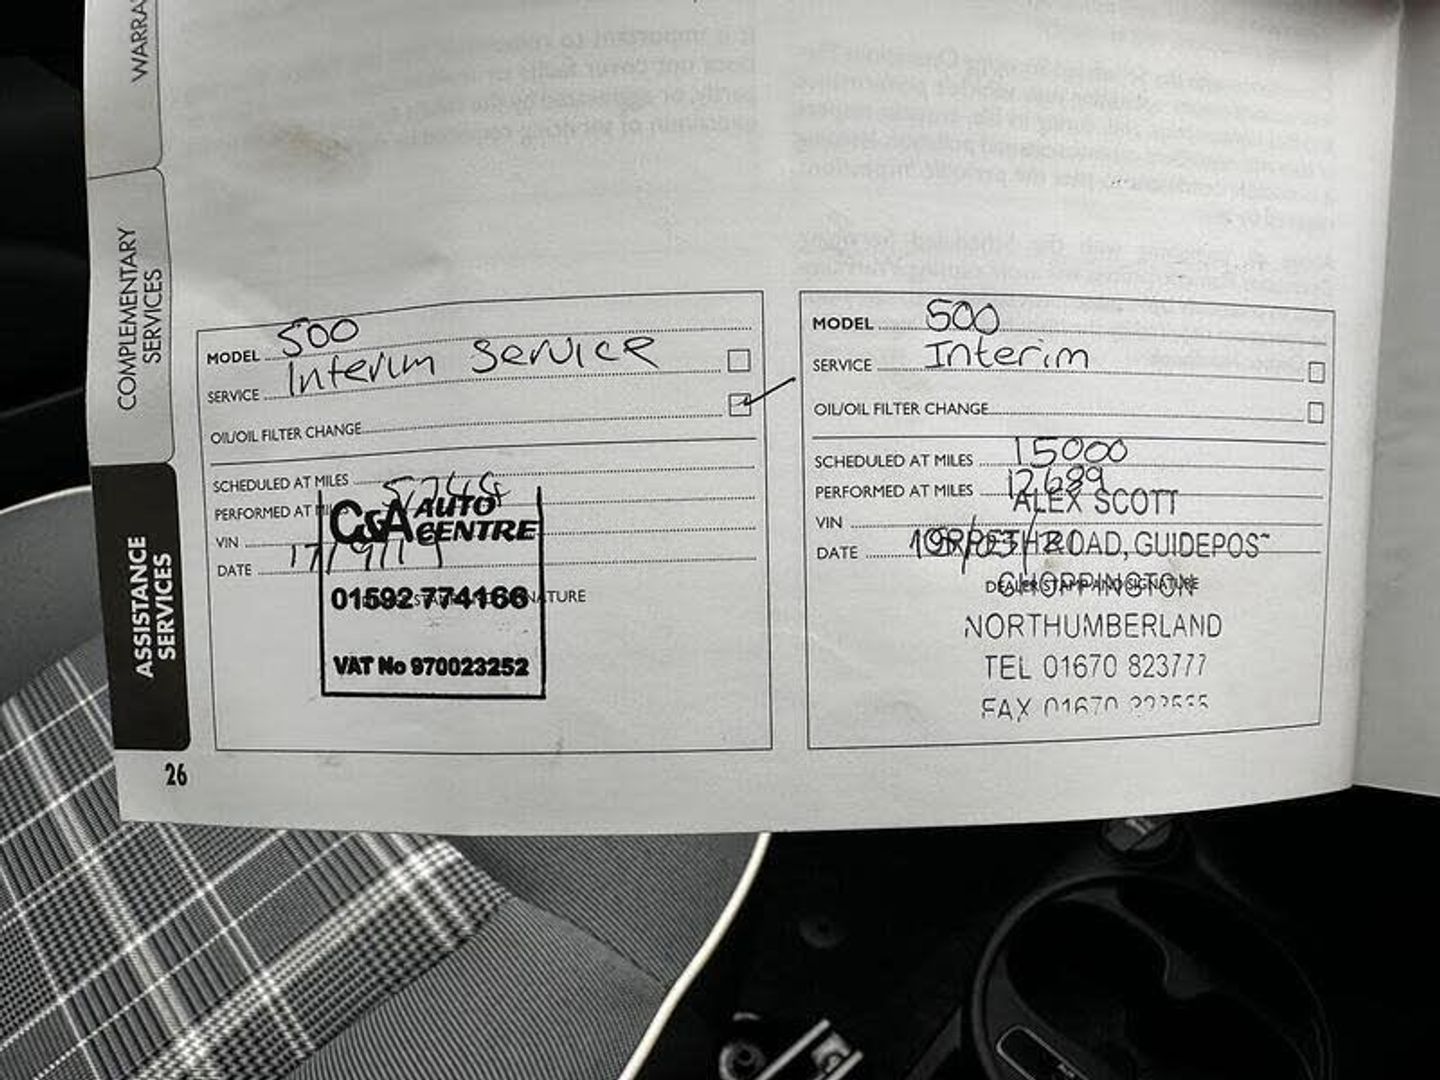 WARRA
COMPLEMENTARY
SERVICES
ASSISTANCE
SERVICES
MODEL 500
SERVICE Interim Service
OIL/OIL FILTER CHANGE
SCHEDULED AT MILES
PERFORMED AT MILES
VIN
DATE 17/9/19
C&A AUTO
CENTRE
01592 774166
VAT No 970023252
26
MODEL 500
SERVICE Interim
OIL/OIL FILTER CHANGE
SCHEDULED AT MILES 15000
PERFORMED AT MILES 12689
VIN
DATE
DEALER STAMP AND SIGNATURE
ALEX SCOTT
ROAD, GUIDEPOS
CHOPPINGTON
NORTHUMBERLAND
TEL 01670 823777
FAX 01670